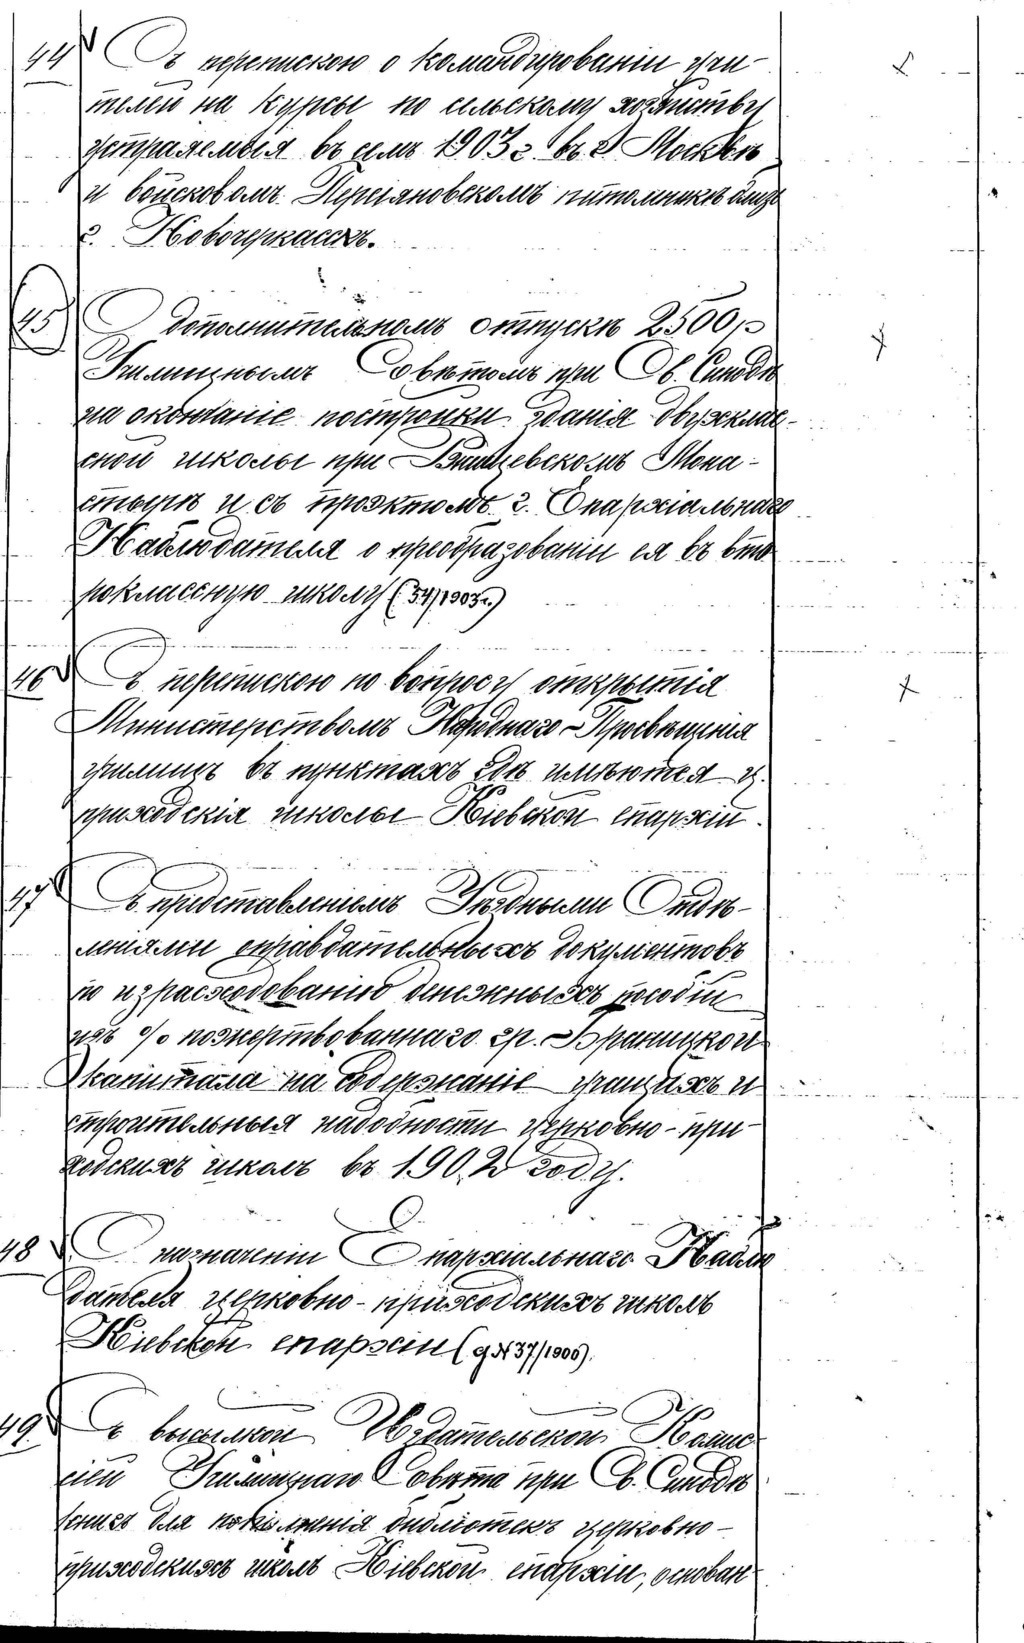 44 Съ перепискою о командированіи учи-
телей на курсы по сельскому хозяйству
устраяемыя въ семъ 1903 г. въ г. Москвѣ
и войсковомъ Персіяновскомъ питомникѣ близъ
г. Новочеркасскъ.
45 О дополнительномъ отпускѣ 2500 р
Училищнымъ Совѣтомъ при Св. Синодѣ
на окончаніе постройки зданія двухклас-
сной школы при монa-
стырѣ и съ проэктомъ г. Епархіальнаго
Наблюдателя о преобразованіи ея въ вто
роклассную школу (54/1903 г.)
46 Съ перепискою по вопросу открытія
Министерствомъ Народнаго Просвѣщенія
училищъ въ пунктахъ гдѣ имѣются ц.
приходскія школы Кіевской епархіи.
47 Съ представленіемъ Уѣздными Отдѣ-
леніями оправдательныхъ документовъ
по израсходованію денежныхъ пособій
изъ % пожертвованнаго гр. Браницкой
капитала на содержаніе учащихъ и
строительныя надобности церковно-при-
ходскихъ школъ въ 1902 году.
48 О назначеніи Епархіальнаго Наблю
дателя церковно-приходскихъ школъ
Кіевской епархіи (д № 37/1906).
49. Съ высылкой Издательской Комис
сіей Училищнаго Совѣта при Св. Синодѣ
книгъ для пополненія библіотекъ церковно-
приходскихъ школъ Кіевской епархіи, основан-